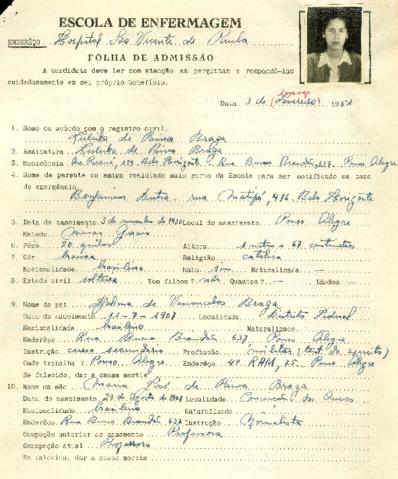 ESCOLA DE ENFERMAGEM
ENDERÊÇO Hospital São Vicente de Paula
FOLHA DE ADMISSÃO
A candidata deve ler com atenção as perguntas e respondê-las
cuidadosamente em seu próprio benefício.
março
Data 3 de fevereiro 1951
1. Nome de acôrdo com o registro civil.
de Paiva Braga
2. Assinatura de Paiva Braga
3. Residência Av. Paraná, 129 Belo Horizonte - Rua Bueno Brandão, 637. Pouso Alegre
4. Nome de parente ou amigo residindo mais perto da Escola para ser notificado em caso
de emergência.
Benjamim rua Matipó, 476. Belo Horizonte
5. Data do nascimento 3 1930 Local do nascimento Pouso Alegre
Estado Minas Gerais
6. Pêso 50 quilos Altura 1 metro e 67 centímetros
7. Côr Religião católica
Nacionalidade brasileira Nata sim Naturalizada
8. Estado civil solteira Tem filhos? não Quantos? Idades
9. Nome do pai de Vasconcelos Braga
Data do nascimento 11-7-1907 Localidade Distrito Federal
Nacionalidade brasileiro Naturalizado
Enderêço Rua Bueno Brandão 637, Pouso Alegre
Instrução curso secundário Profissão militar (tent. do exército)
Onde trabalha? Pouso Alegre Enderêço Pouso Alegre
Se falecido, dar a causa mortis
10. Nome da mãe Maria José de Paiva Braga
Data do nascimento 29 de Agosto de Localidade Conceição
Nacionalidade brasileira Naturalizada
Enderêço Rua Bueno Brandão 637 Instrução Normalista
Ocupação anterior ao casamento Professora
Ocupação atual Professora
Se falecida, dar a causa mortis